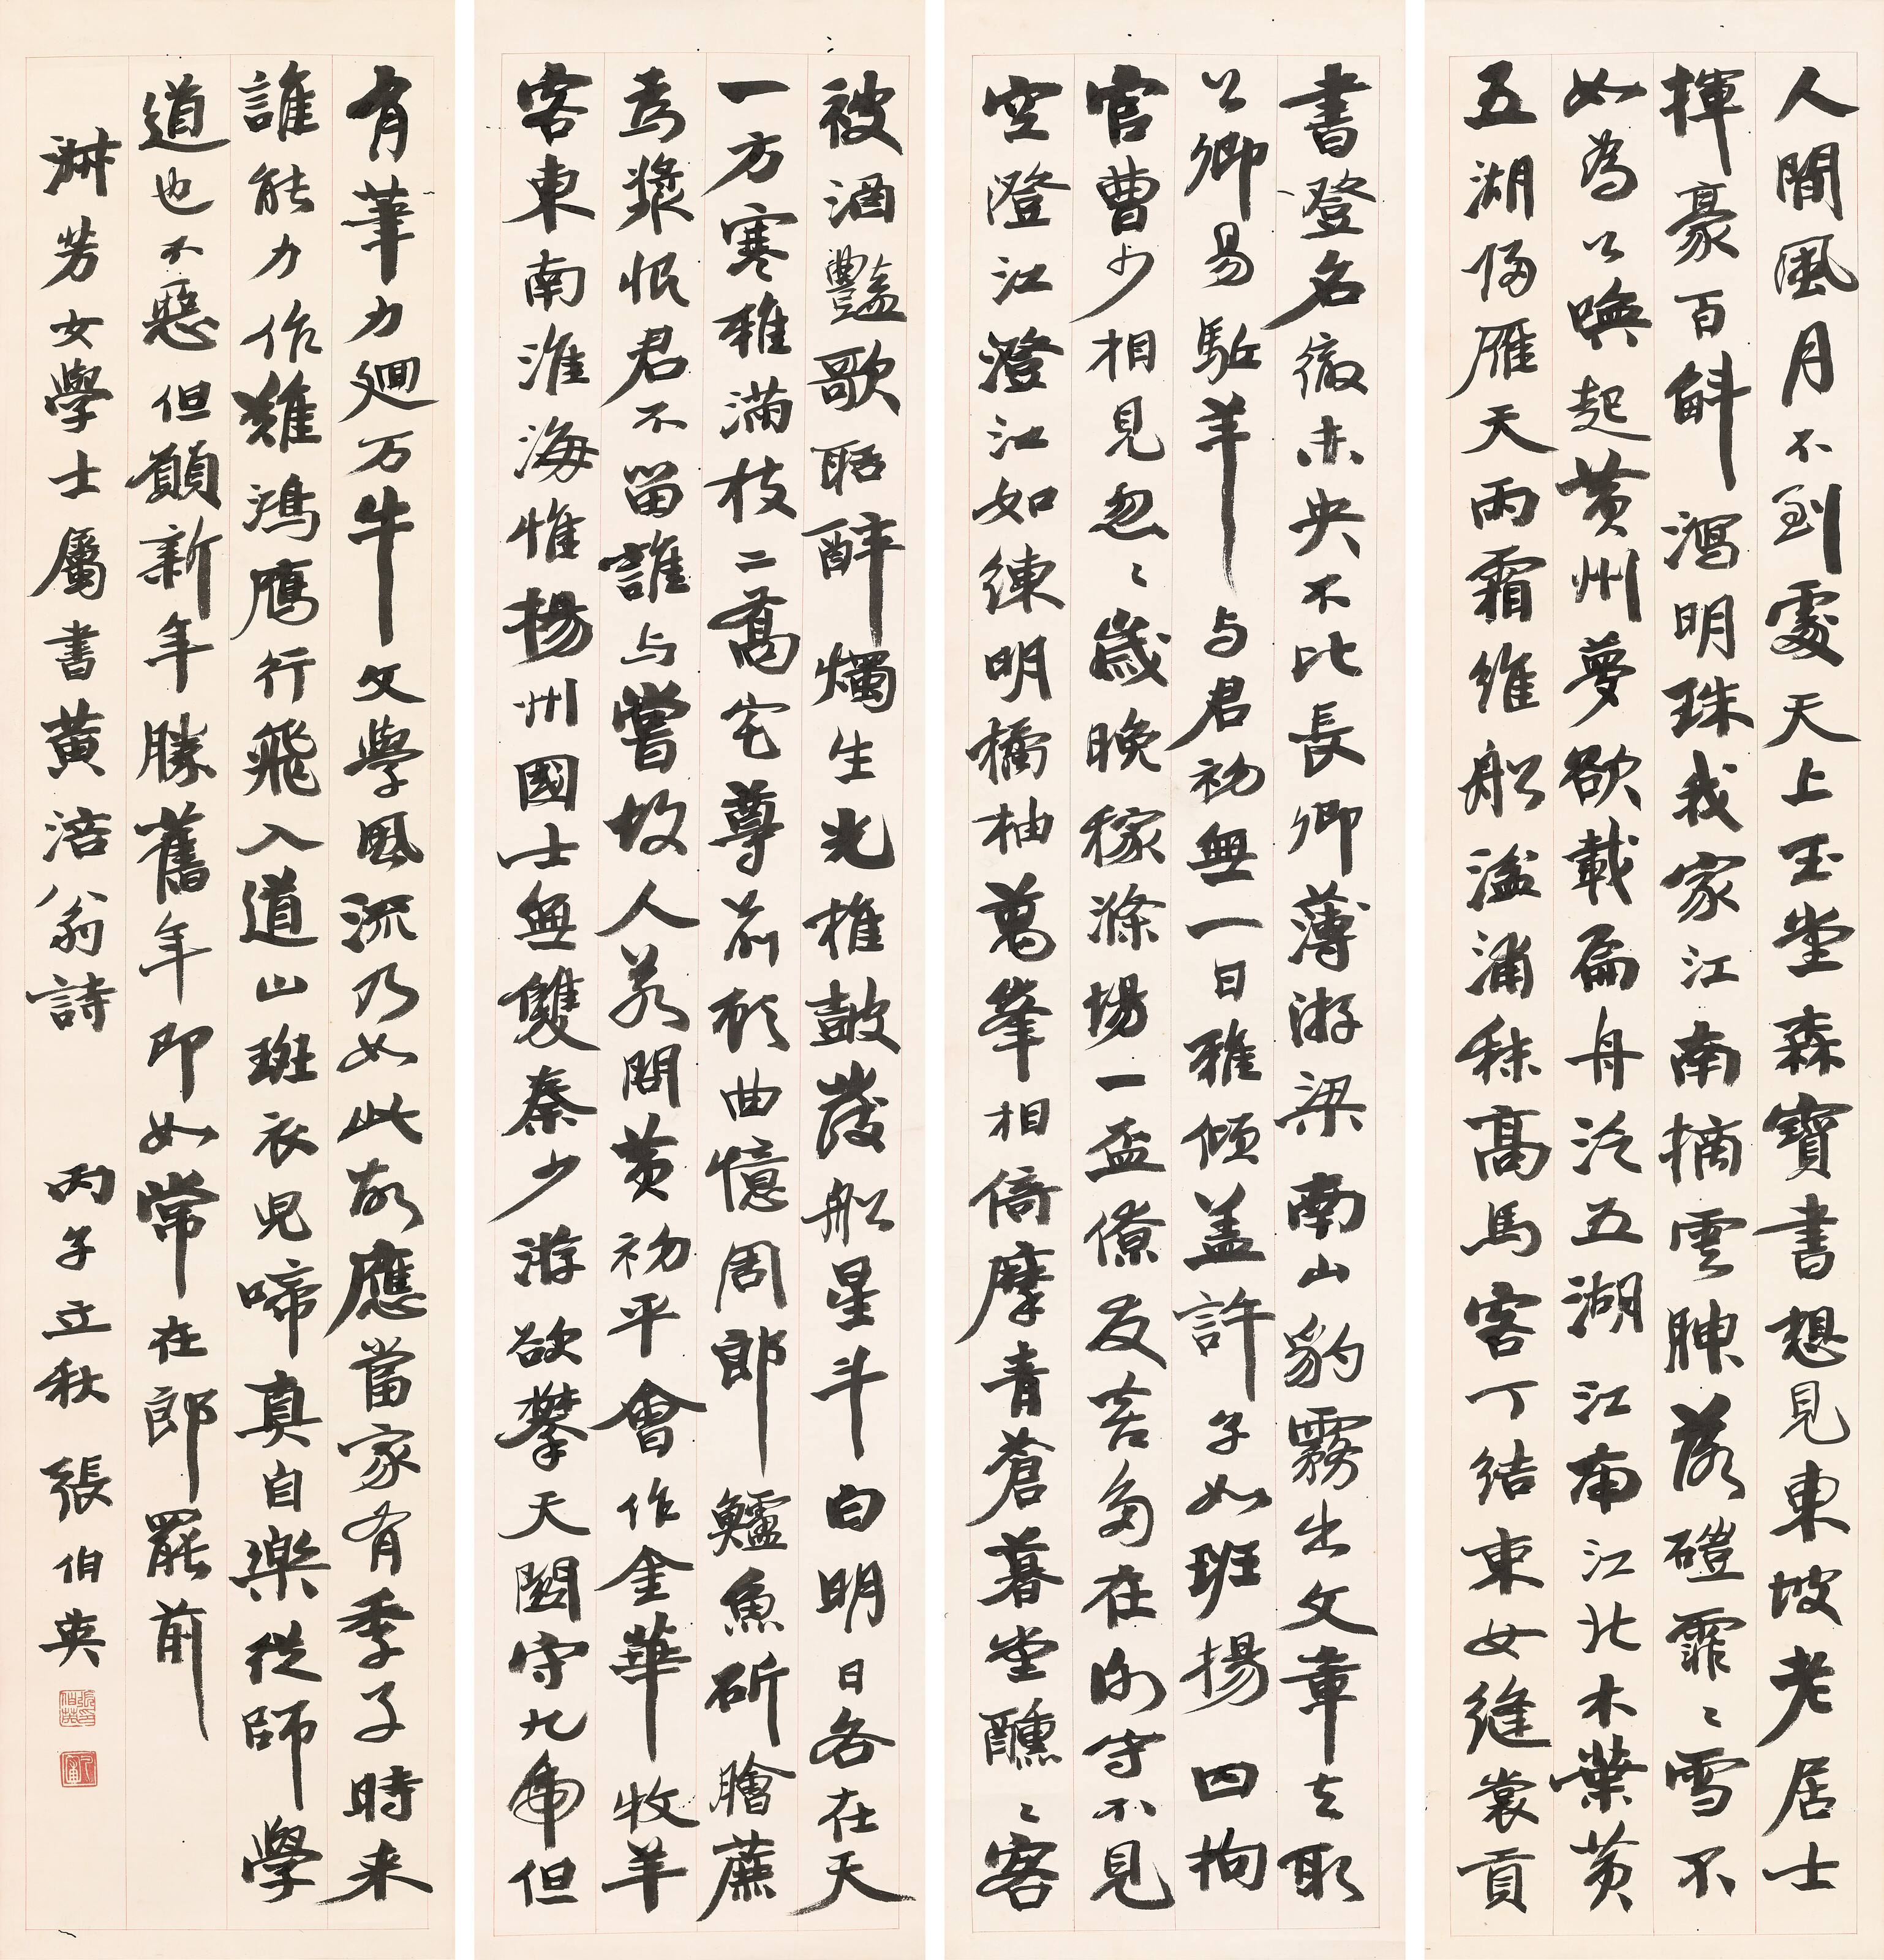 人間風月不到處天上玉堂森寶書想見東坡老居士
揮豪百斛瀉明珠我家江南摘雲腴落磑霏〻雪不
如為公喚起黄州夢欲載扁舟泛五湖江南江北木葉黄
五湖歸雁天雨霜維船湓浦秣髙馬客丁結束女縫裳貢
書登名徹未央不比長卿薄游梁南山豹霧出文章去取
公卿易駈羊与君初無一日雅傾盖許子如班揚四拘
官曹少相見忽〻歲晚稼滌場一盃僚友喜多在向守不見
空澄江澄江如練明橘柚萬峯相倚摩青蒼暮堂醺〻客
被酒豔歌聒醉燭生光椎鼓發船星斗白明日各在天
一方寒雅滿枝二喬宅尊前顧曲憶周郎鱸魚斫膾蔗
為漿恨君不留誰与嘗故人若問黄初平會作金華牧羊
客東南淮海惟揚州國士無雙秦少游欲攀天闗守九虎但
有筆力廻万牛文學風流乃如此故應當家有季子時来
誰能力作難鴻鴈行飛入道山斑衣兒啼真自樂從師學
道也不惡但願新年勝舊年即如常在郎罷前
淑芳女學士屬書黄涪翁詩 丙子立秋 張伯英
張伯英印